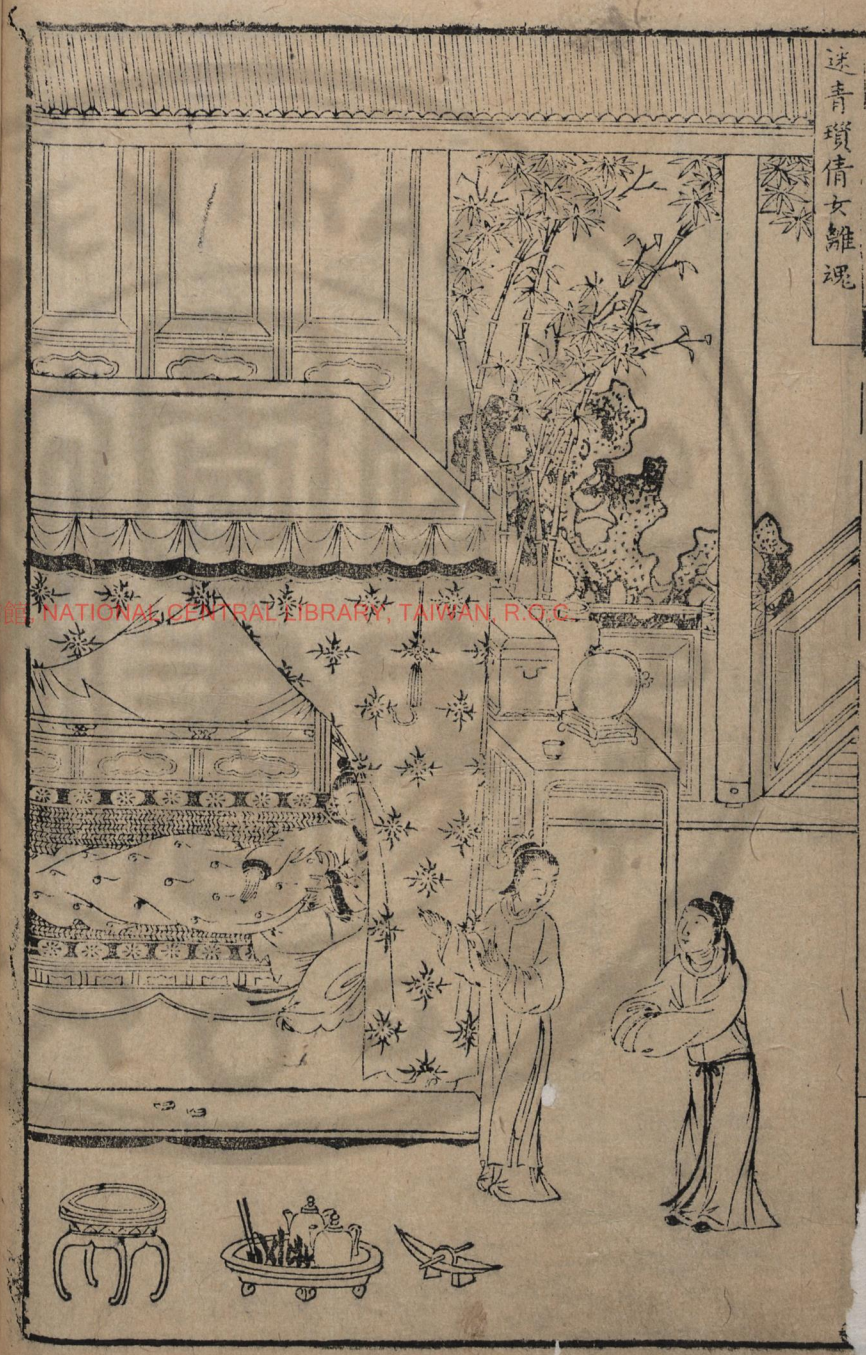 迷青瑣倩女離魂
館, NATIONAL CENTRAL LIBRARY, TAIWAN, R.O.C.